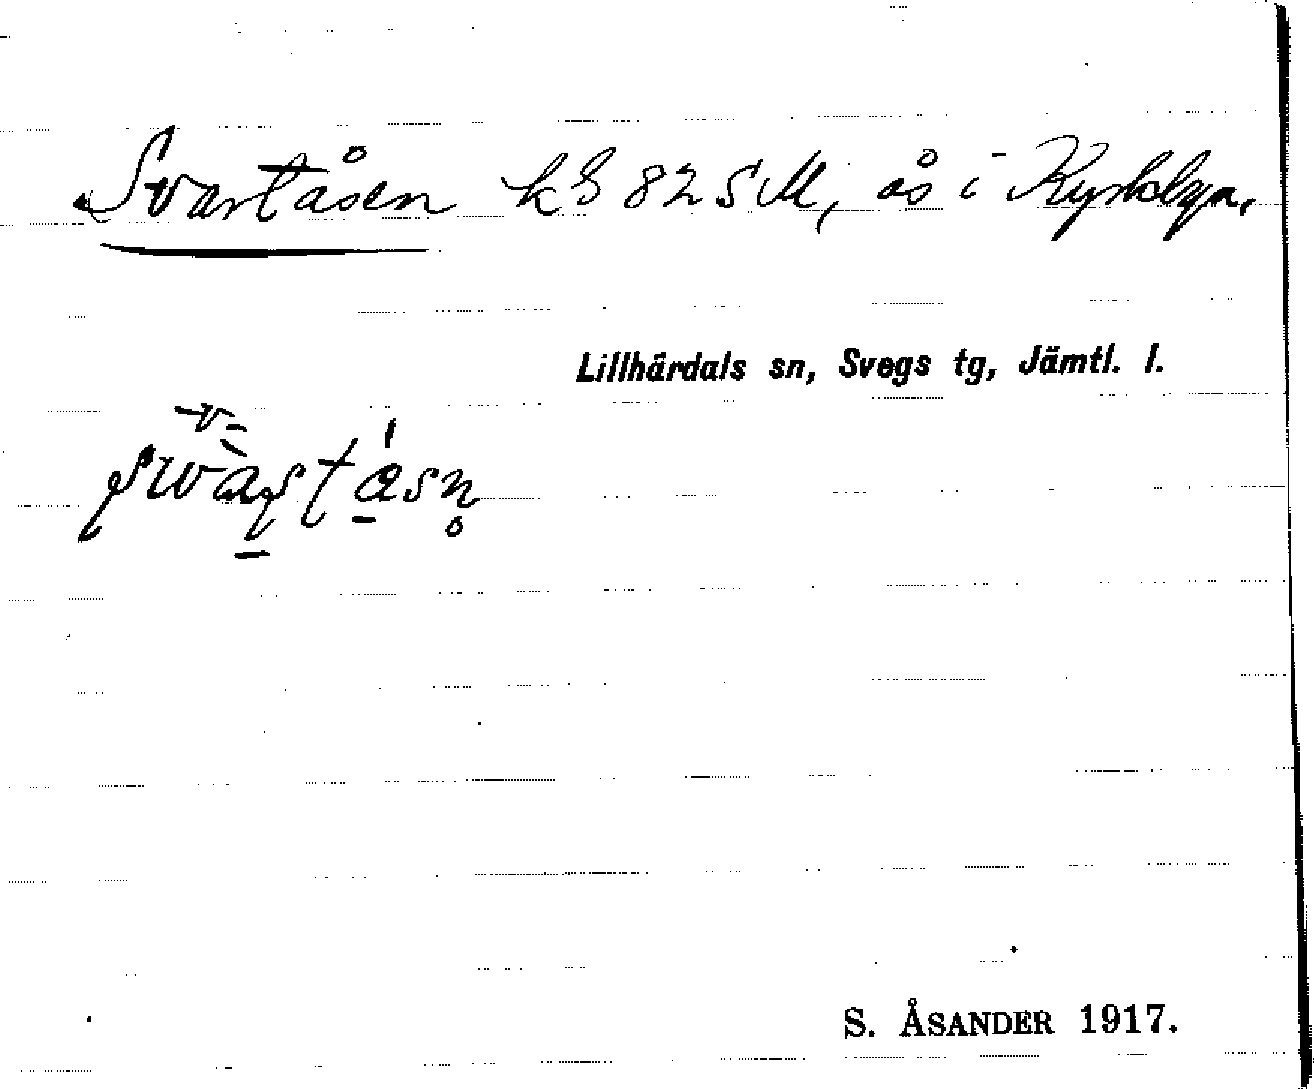 Svartåsen kb 82 SM, ås i Kyrkbyn.
Lillhärdals sn, Svegs tg, Jämtl. l.
S. ÅSANDER 1917.